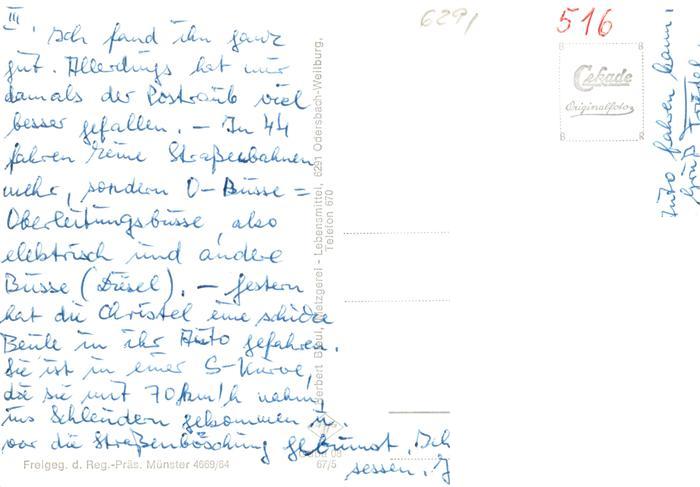 III.
Ich fand ihn ganz
gut. Allerdings hat mir
damals der Postraub viel
besser gefallen. – In 44
fahren keine Straßenbahnen
mehr, sondern O-Busse =
Oberleitungsbusse, also
elektrisch und andere
Busse (Diesel). – Gestern
hat die Christel eine schicke
Beule in ihr Auto gefahren.
Sie ist in einer S-Kurve,
die sie mit 70 km/h nahm,
ins Schleudern gekommen u.
vor die Straßenböschung gebumst. Ich
sessen. J
Auto fahren kann!
Gruß
Herbert Betul, Metzgerei - Lebensmittel, 6291 Odersbach-Weilburg,
Telefon 670
629/
516
Cekade
Originalfoto
Freigeg. d. Reg.-Präs. Münster 4669/64
67/5